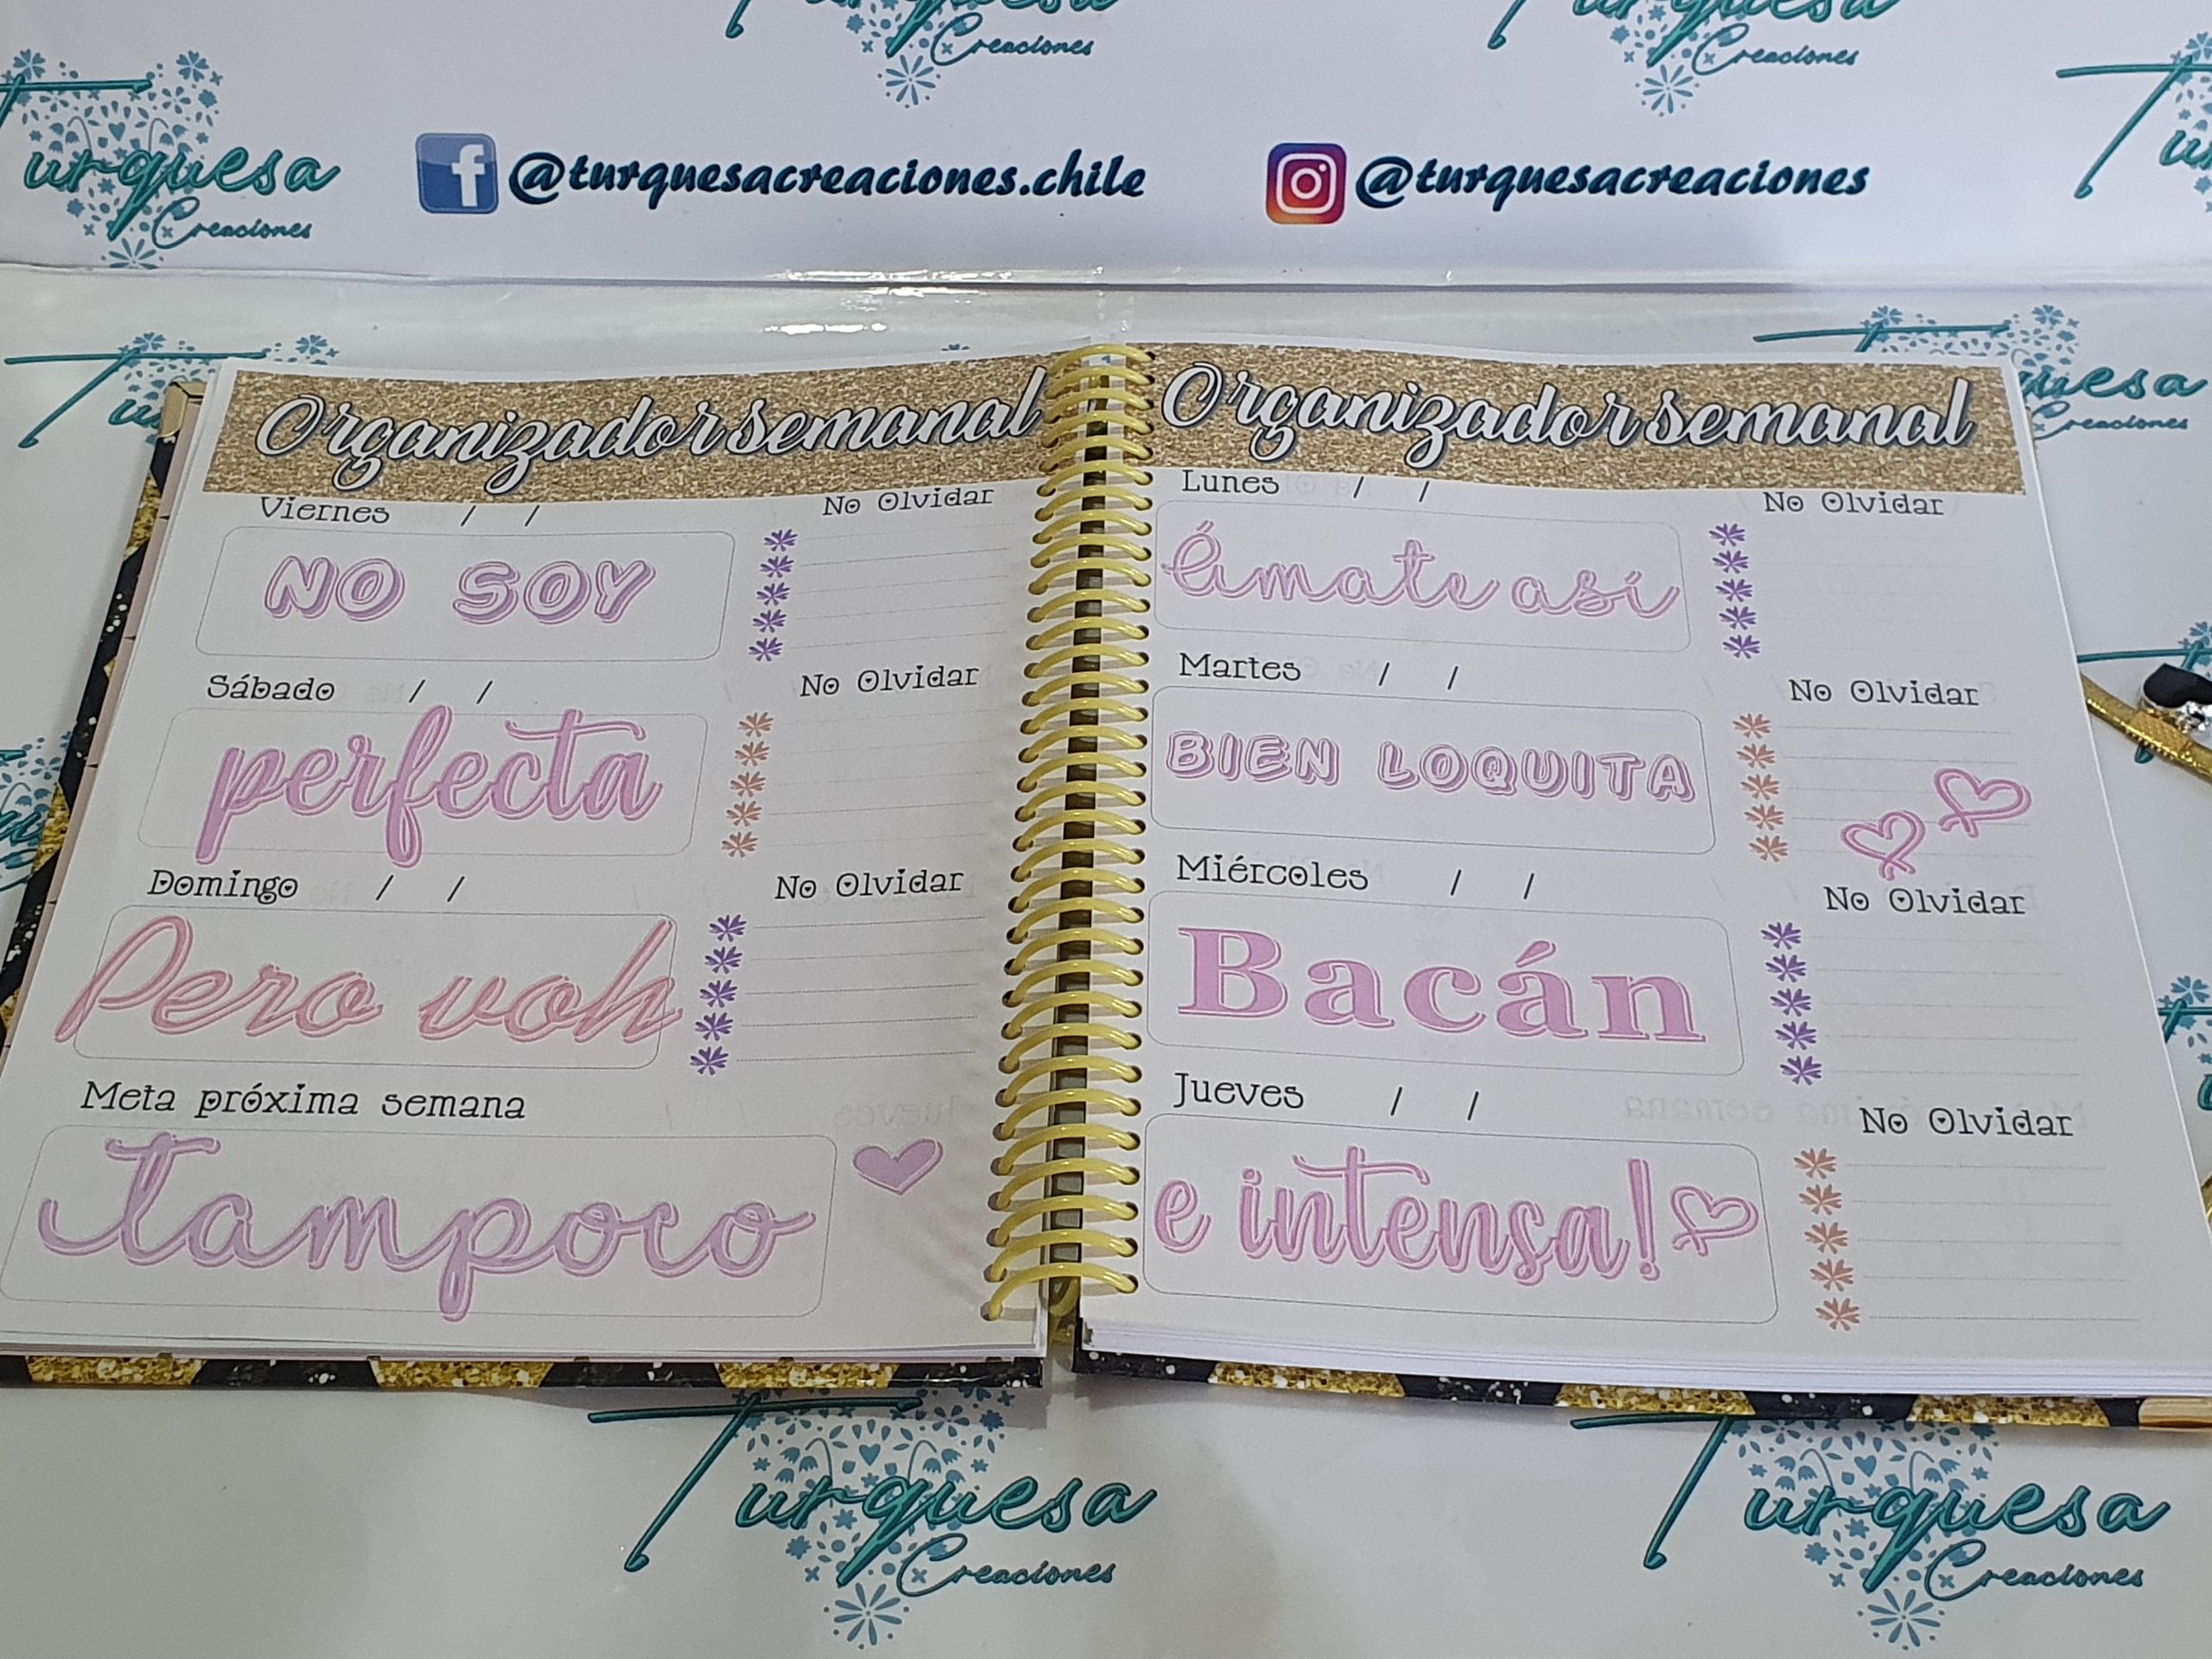 Turquesa
Creaciones
Turquesa
Creaciones
Turquesa
Creaciones
@turquesacreaciones.chile
@turquesacreaciones
Organizador semanal
Viernes / /
No Olvidar
NO SOY
Sábado / /
No Olvidar
perfecta
Domingo / /
No Olvidar
Pero voh
Meta próxima semana
tampoco
Organizador semanal
Lunes / /
No Olvidar
Ámate así
Martes / /
No Olvidar
BIEN LOQUITA
Miércoles / /
No Olvidar
Bacán
Jueves / /
No Olvidar
e intensa!
Turquesa
Creaciones
Turquesa
Creaciones